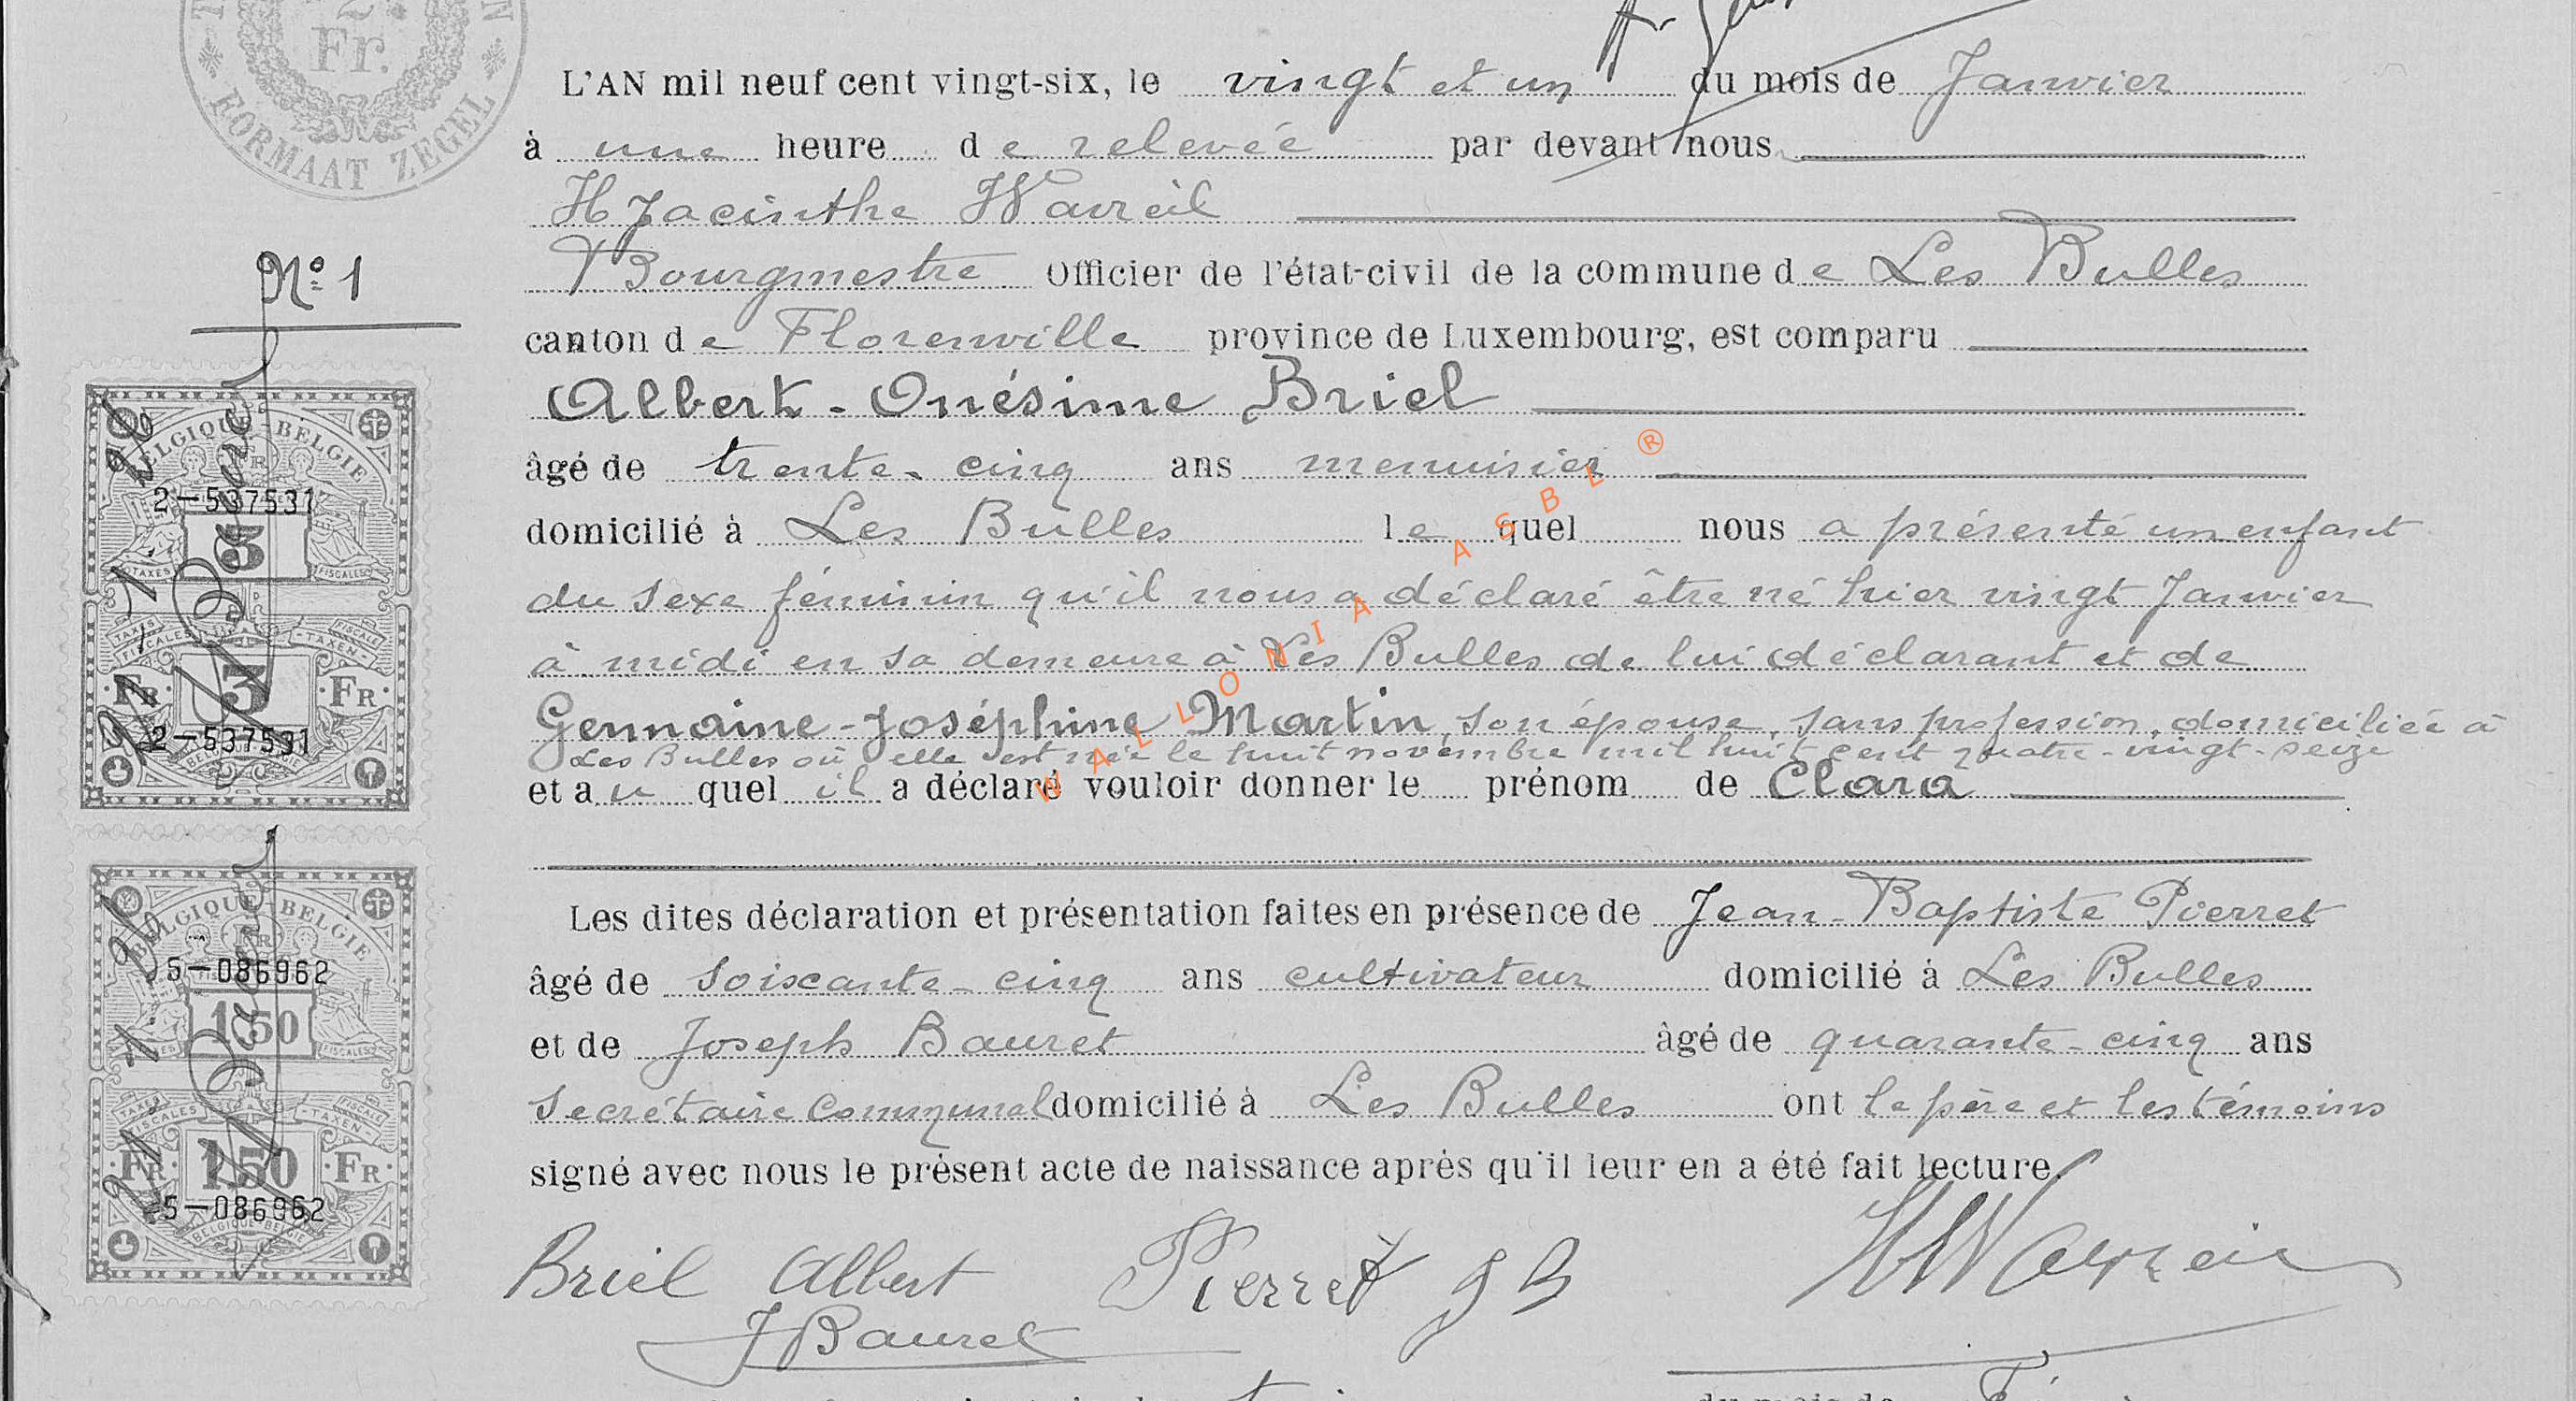 Fr.
FORMAAT ZEGEL
L'AN mil neuf cent vingt-six, le vingt et un du mois de Janvier
à une heure de relevée par devant nous
Hyacinthe Wavreil
Bourgmestre Officier de l'état-civil de la commune de Les Bulles
N° 1
canton de Florenville province de Luxembourg, est comparu
Albert-Onésime Briel
âgé de trente-cinq ans menuisier
domicilié à Les Bulles lequel nous a présenté un enfant
du sexe féminin qu'il nous a déclaré être né hier vingt Janvier
à midi en sa demeure à Les Bulles de lui déclarant et de
Germaine-Joséphine Martin, son épouse, sans profession, domiciliée à
Les Bulles où elle est née le huit novembre mil huit cent quatre-vingt-seize
et au quel il a déclaré vouloir donner le prénom de Clara
Les dites déclaration et présentation faites en présence de Jean-Baptiste Pierret
âgé de soixante-cinq ans cultivateur domicilié à Les Bulles
et de Joseph Bauret âgé de quarante-cinq ans
Secrétaire Communal domicilié à Les Bulles ont le père et les témoins
signé avec nous le présent acte de naissance après qu'il leur en a été fait lecture.
Briel Albert Pierret J B HWavreil
J Bauret
BELGIQUE-BELGIE
FR
2-537531
3
TAXES FISCALES
TAXES FISCALES FISCALE TAXEN
FR 3 FR
2-537531
BELGIQUE-BELGIE
BELGIQUE-BELGIE
FR
5-086962
1.50
TAXES FISCALES
TAXES FISCALES FISCALE TAXEN
FR 1.50 FR
5-086962
BELGIQUE-BELGIE
WALLONIA ASBL ®
du mois de